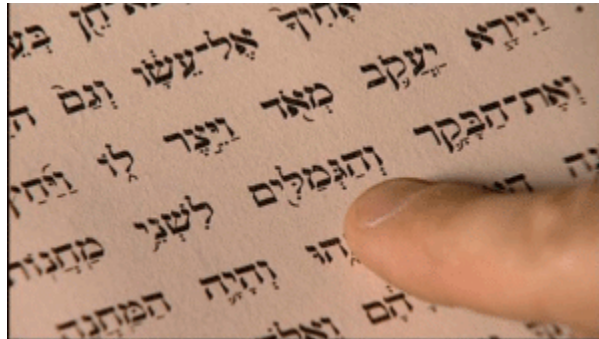 אָחִ֙יךָ֙ אֶל־עֵשָׂ֔ו וְגַם֙
וַיִּירָ֧א יַעֲקֹ֛ב מְאֹ֖ד וַיֵּ֣צֶר ל֑וֹ וַיַּ֜חַץ
וְאֶת־הַבָּקָ֛ר וְהַגְּמַלִּ֖ים לִשְׁנֵ֥י מַחֲנֽוֹת
וְהָיָ֛ה הַמַּחֲנֶ֥ה